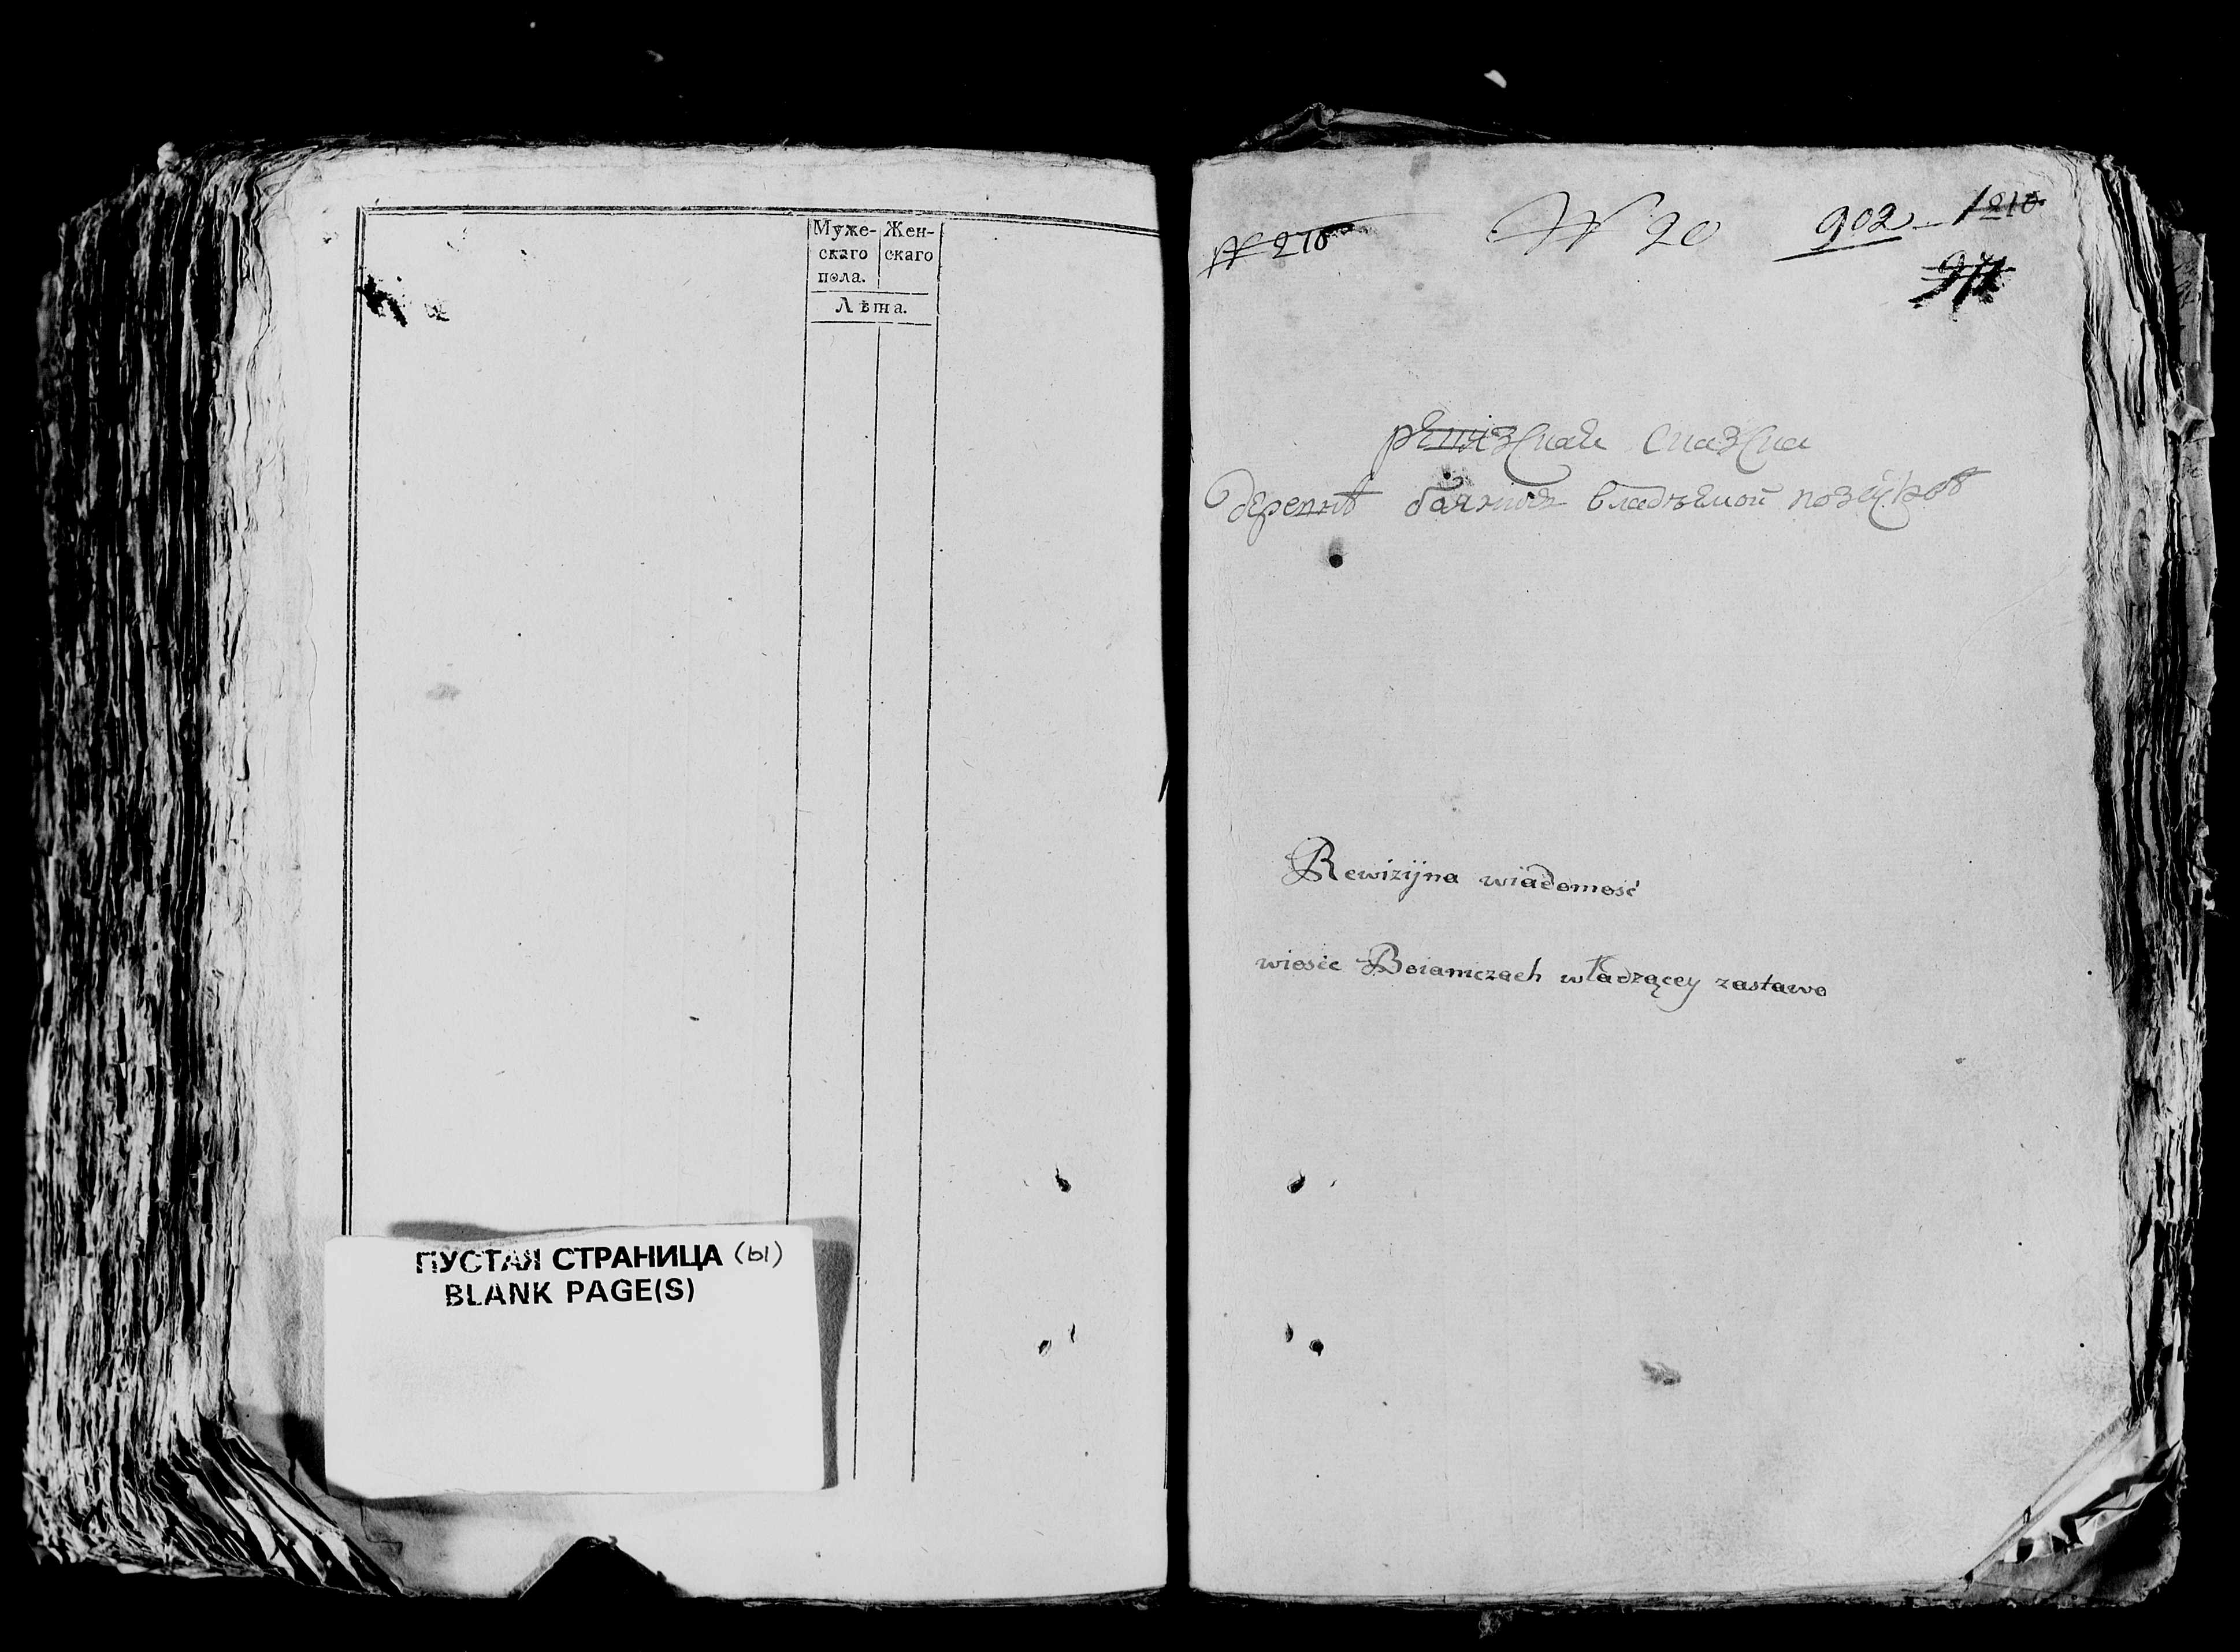 Муже-
скаго
пола.
Жен-
скаго
Лѣта.
ПУСТАЯ СТРАНИЦА (ы)
BLANK PAGE(S)
№ 210
№ 20
902 - 1210
ревизская сказка
деревнѣ владѣемой
Rewizijna wiadomość
wiosce Boianiczach władzącey zastawo